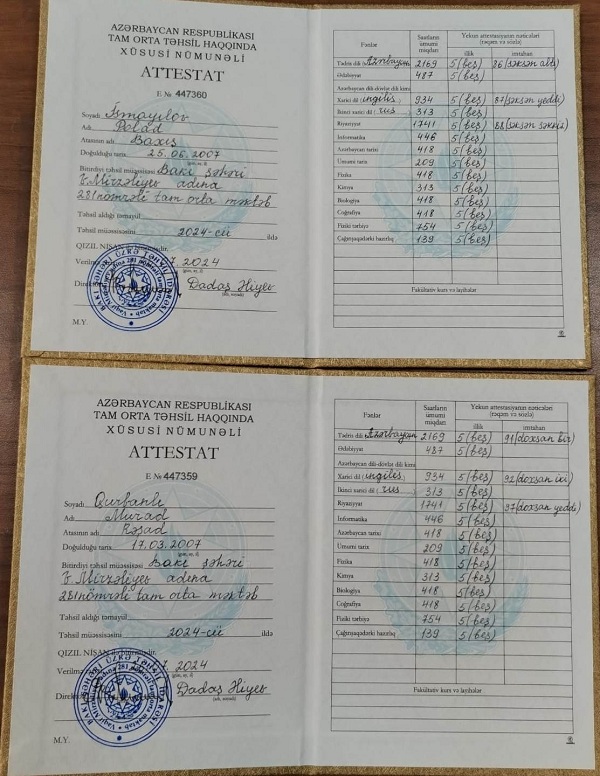 AZƏRBAYCAN RESPUBLİKASI
TAM ORTA TƏHSİL HAQQINDA
XÜSUSİ NÜMUNƏLİ
ATTESTAT
E № 447360
Soyadı İsmayılov
Adı Polad
Atasının adı Baxış
Doğulduğu tarix 25.06.2007
Bitirdiyi təhsil müəssisəsi Bakı şəhəri
V.Mirzəliyev adına
281 nömrəli tam orta məktəb
Təhsil aldığı təmayül
Təhsil müəssisəsini 2024-cü ildə
QIZIL NİŞAN
2024
Dadaş Əliyev
M.Y.
Fənlər
Saatların ümumi miqdarı
Yekun attestasiyanın nəticələri
(rəqəm və sözlə)
illik
imtahan
Tədris dili Azərbaycan 2169 5(beş) 86(səksən altı)
Ədəbiyyat 487 5(beş)
Azərbaycan dili-dövlət dili kimi
Xarici dil (ingilis) 934 5(beş) 87(səksən yeddi)
İkinci xarici dil (rus) 313 5(beş)
Riyaziyyat 1741 5(beş) 88(səksən səkkiz)
İnformatika 446 5(beş)
Azərbaycan tarixi 418 5(beş)
Ümumi tarix 209 5(beş)
Fizika 418 5(beş)
Kimya 313 5(beş)
Biologiya 418 5(beş)
Coğrafiya 418 5(beş)
Fiziki tərbiyə 754 5(beş)
Çağırışaqədərki hazırlıq 139 5(beş)
Fakültativ kurs və layihələr
AZƏRBAYCAN RESPUBLİKASI
TAM ORTA TƏHSİL HAQQINDA
XÜSUSİ NÜMUNƏLİ
ATTESTAT
E № 447359
Soyadı Qurbanlı
Adı Murad
Atasının adı Rəşad
Doğulduğu tarix 17.03.2007
Bitirdiyi təhsil müəssisəsi Bakı şəhəri
V.Mirzəliyev adına
281 nömrəli tam orta məktəb
Təhsil aldığı təmayül
Təhsil müəssisəsini 2024-cü ildə
QIZIL NİŞAN
2024
Dadaş Əliyev
M.Y.
Fənlər
Saatların ümumi miqdarı
Yekun attestasiyanın nəticələri
(rəqəm və sözlə)
illik
imtahan
Tədris dili Azərbaycan 2169 5(beş) 91(doxsan bir)
Ədəbiyyat 487 5(beş)
Azərbaycan dili-dövlət dili kimi
Xarici dil (ingilis) 934 5(beş) 92(doxsan iki)
İkinci xarici dil (rus) 313 5(beş)
Riyaziyyat 1741 5(beş) 97(doxsan yeddi)
İnformatika 446 5(beş)
Azərbaycan tarixi 418 5(beş)
Ümumi tarix 209 5(beş)
Fizika 418 5(beş)
Kimya 313 5(beş)
Biologiya 418 5(beş)
Coğrafiya 418 5(beş)
Fiziki tərbiyə 754 5(beş)
Çağırışaqədərki hazırlıq 139 5(beş)
Fakültativ kurs və layihələr